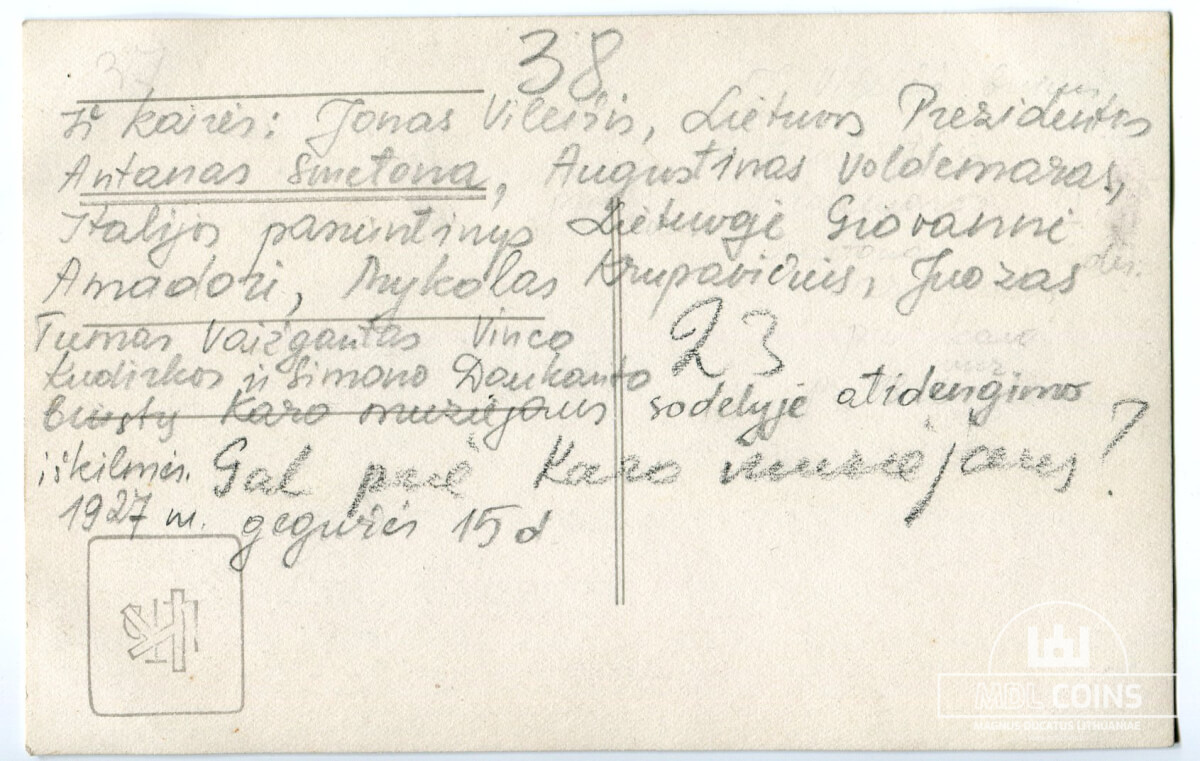 37
38
Iš kairės: Jonas Vileišis, Lietuvos Prezidentas
Antanas Smetona, Augustinas Voldemaras,
Italijos pasiuntinys Lietuvoje Giovanni
Amadori, Mykolas Krupavičius, Juozas
Tumas Vaižgantas Vinco
23
Kudirkos ir Simono Daukanto
biustų Karo muziejaus sodelyje atidengimo
iškilmės. Gal prie Karo muziejaus?
1927 m. gegužės 15 d
MDL COINS
MAGNUS DUCATUS LITHUANIAE